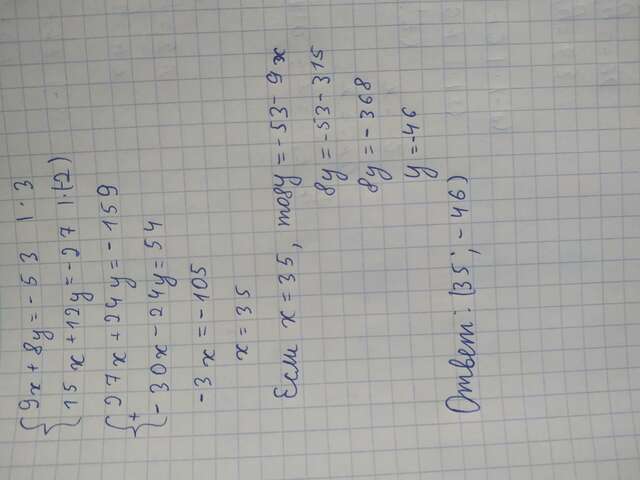 9x + 8y = -53 | · 3
15x + 12y = -27 | · (-2)
27x + 24y = -159
+
-30x - 24y = 54
-3x = -105
x = 35
Если x = 35, то 8y = -53 - 9x
8y = -53 - 315
8y = -368
y = -46
Ответ: (35; -46)